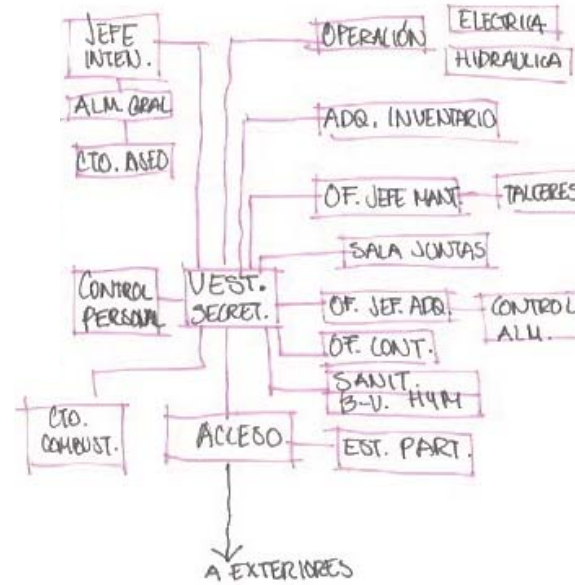 JEFE
INTEN.
OPERACIÓN
ELECTRICA
HIDRAULICA
ALM. GRAL
CTO. ASEO
ADQ. INVENTARIO
OF. JEFE MANT.
TALLERES
SALA JUNTAS
CONTROL
PERSONAL
VEST.
SECRET.
OF. JEF. ADQ.
CONTROL
ALM.
OF. CONT.
SANIT.
B-V. HYM
CTO.
COMBUST.
ACCESO
EST. PART.
A EXTERIORES